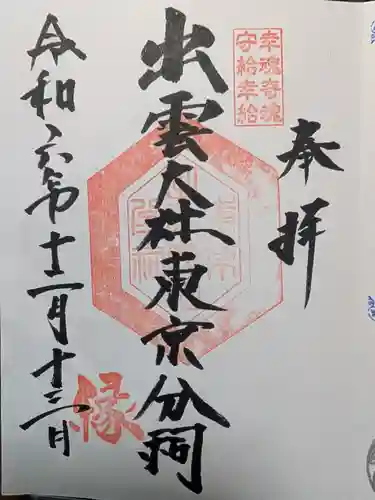 奉拝
幸魂奇魂
守給幸給
出雲大社東京分祠
令和六年十二月十三日
縁